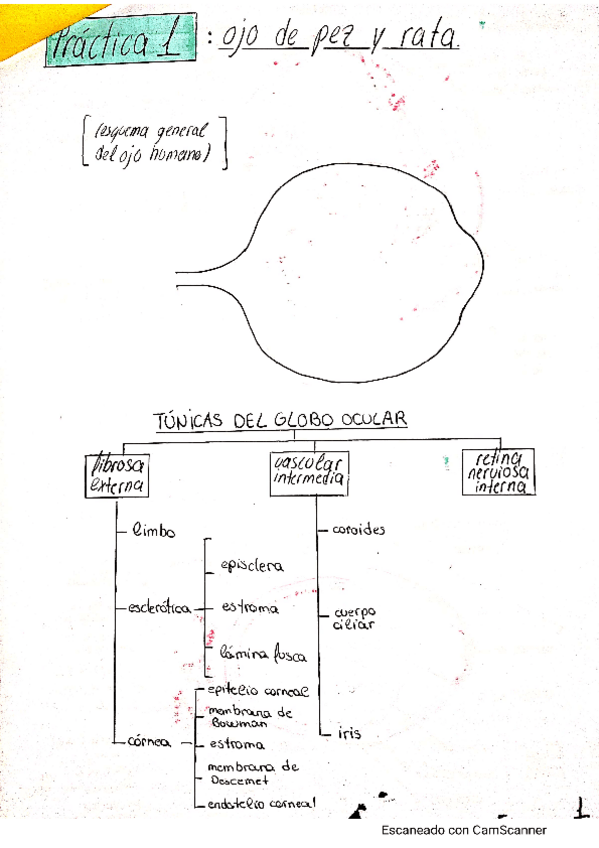 Práctica 1 : ojo de pez y rata.
[(esquema general
del ojo humano)]
TÚNICAS DEL GLOBO OCULAR
fibrosa
externa
vascular
intermedia
retina
nerviosa
interna
limbo
esclerótica
episclera
estroma
lámina fusca
córnea
epitelio corneal
membrana de
Bowman
estroma
membrana de
Descemet
endotelio corneal
coroides
cuerpo
ciliar
iris
1
Escaneado con CamScanner